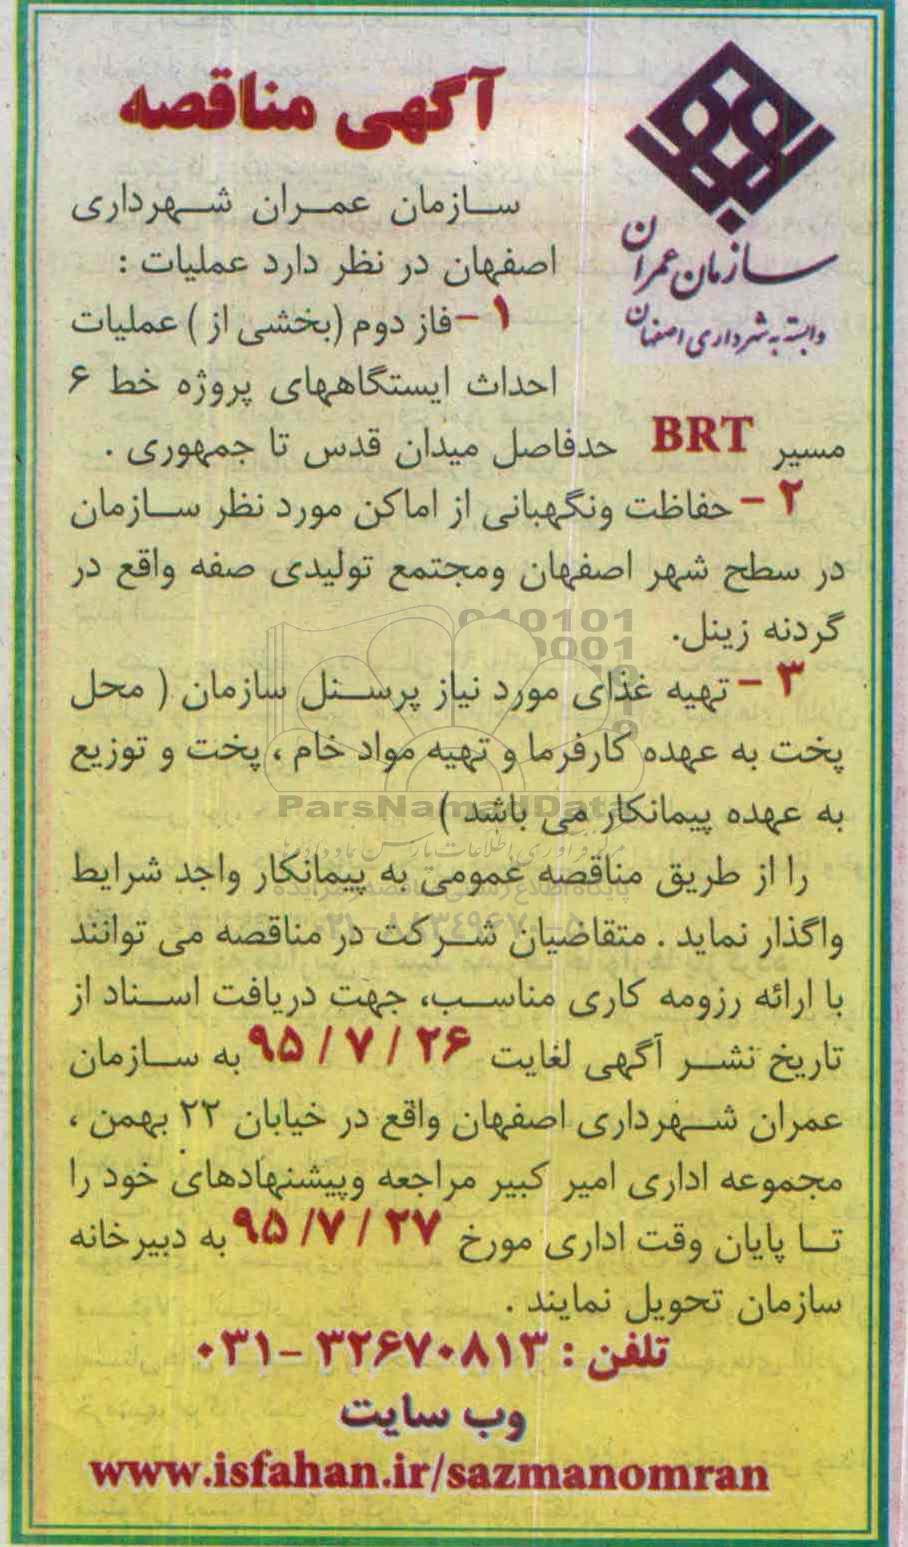 آگهی مناقصه
سازمان عمران
وابسته به شهرداری اصفهان
سازمان عمران شهرداری
اصفهان در نظر دارد عملیات :
۱ - فاز دوم (بخشی از ) عملیات
احداث ایستگاههای پروژه خط ۶
مسیر BRT حدفاصل میدان قدس تا جمهوری .
۲ - حفاظت ونگهبانی از اماکن مورد نظر سازمان
در سطح شهر اصفهان ومجتمع تولیدی صفه واقع در
گردنه زینل.
۳ - تهیه غذای مورد نیاز پرسنل سازمان ( محل
پخت به عهده کارفرما و تهیه مواد خام ، پخت و توزیع
به عهده پیمانکار می باشد )
را از طریق مناقصه عمومی به پیمانکار واجد شرایط
واگذار نماید . متقاضیان شرکت در مناقصه می توانند
با ارائه رزومه کاری مناسب، جهت دریافت اسناد از
تاریخ نشر آگهی لغایت ۲۶ / ۷ / ۹۵ به سازمان
عمران شهرداری اصفهان واقع در خیابان ۲۲ بهمن ،
مجموعه اداری امیر کبیر مراجعه وپیشنهادهای خود را
تا پایان وقت اداری مورخ ۲۷ / ۷/ ۹۵ به دبیرخانه
سازمان تحویل نمایند .
تلفن : ۳۲۶۷۰۸۱۳ -۰۳۱
وب سایت
www.isfahan.ir/sazmanomran
ParsNamadData